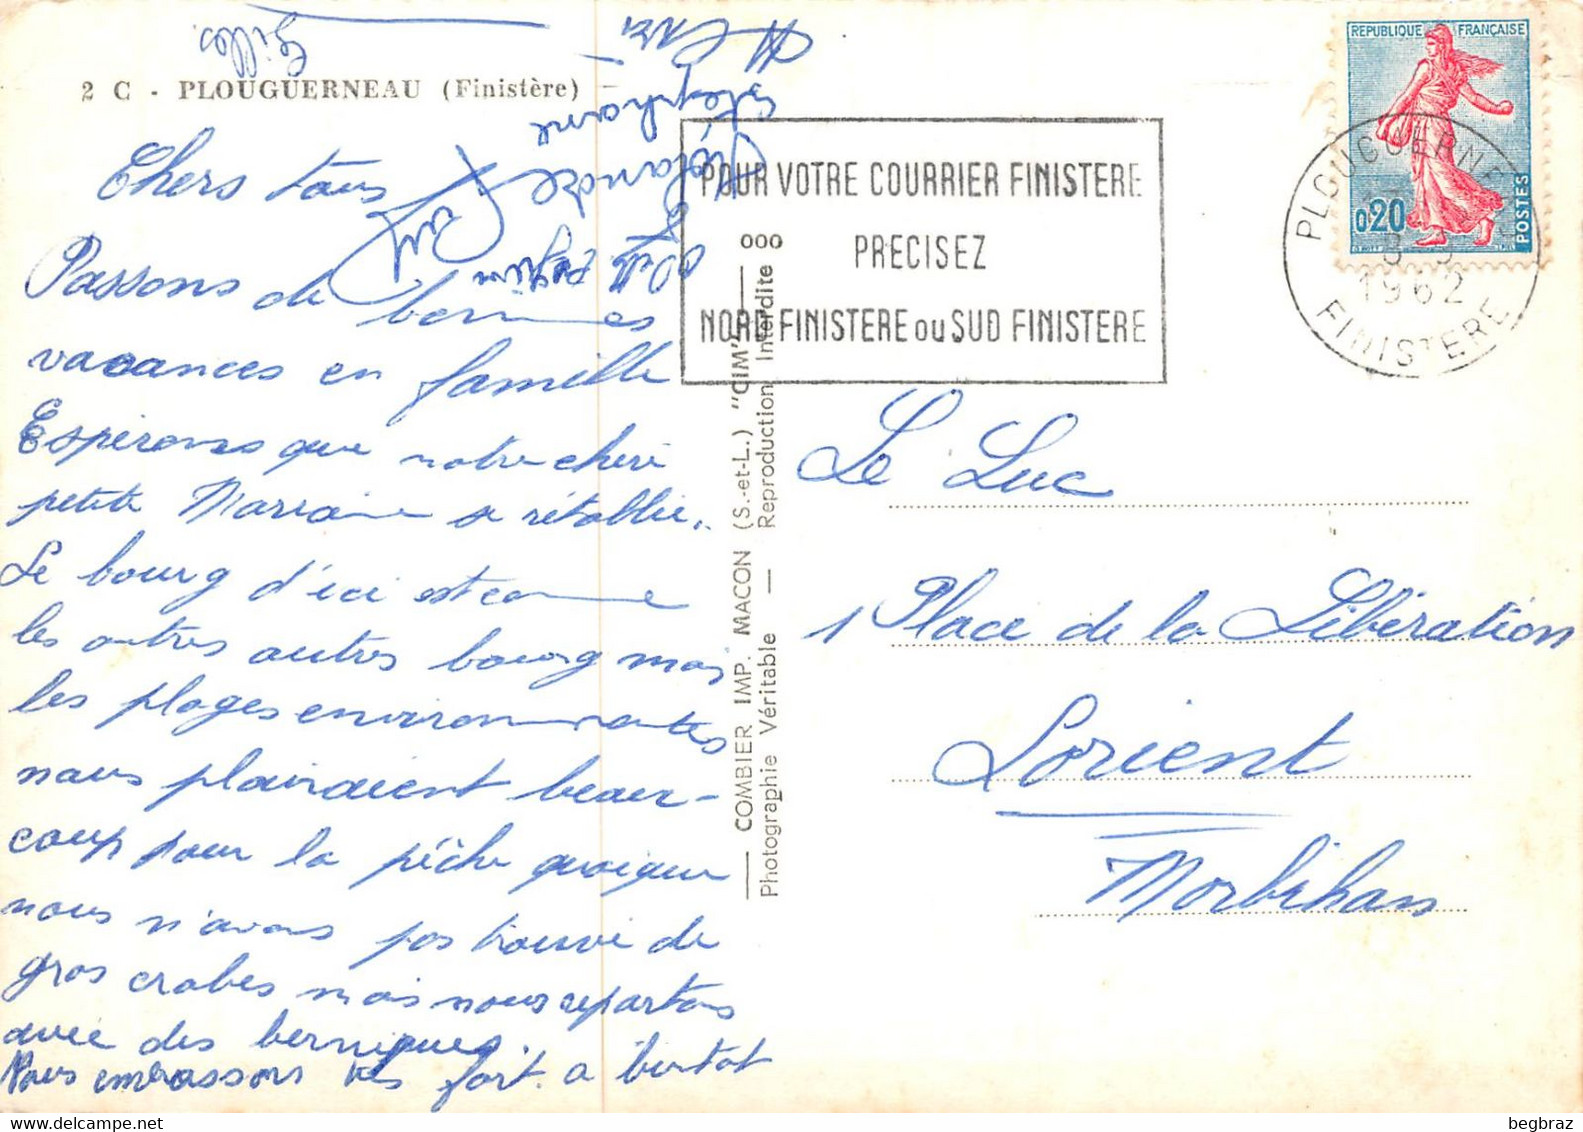 2 C - PLOUGUERNEAU (Finistère)
Chers tous
Passons de bonnes
vacances en famille
Espérons que notre chère
petite Marraine se rétablie.
Le bourg d'ici est comme
les autres autres bourg mais
les plages environnantes
nous plairaient beau-
coup pour la pêche quoique
nous n'avons pas trouvé de
gros crabes mais nous repartons
avec des berniques.
Nous embrassons vs fort. a bientot
Gilles
Stéphane
Yolande
POUR VOTRE COURRIER FINISTERE
ooo PRECISEZ
NORD FINISTERE OU SUD FINISTERE
REPUBLIQUE FRANÇAISE
0,20
POSTES
PLOUGUERNEAU
1962
FINISTERE
COMBIER IMP. MACON (S.-et-L.) "CIM"
Photographie Véritable — Reproduction Interdite
Le Luc
1 Place de la Libération
Lorient
Morbihan
begbraz